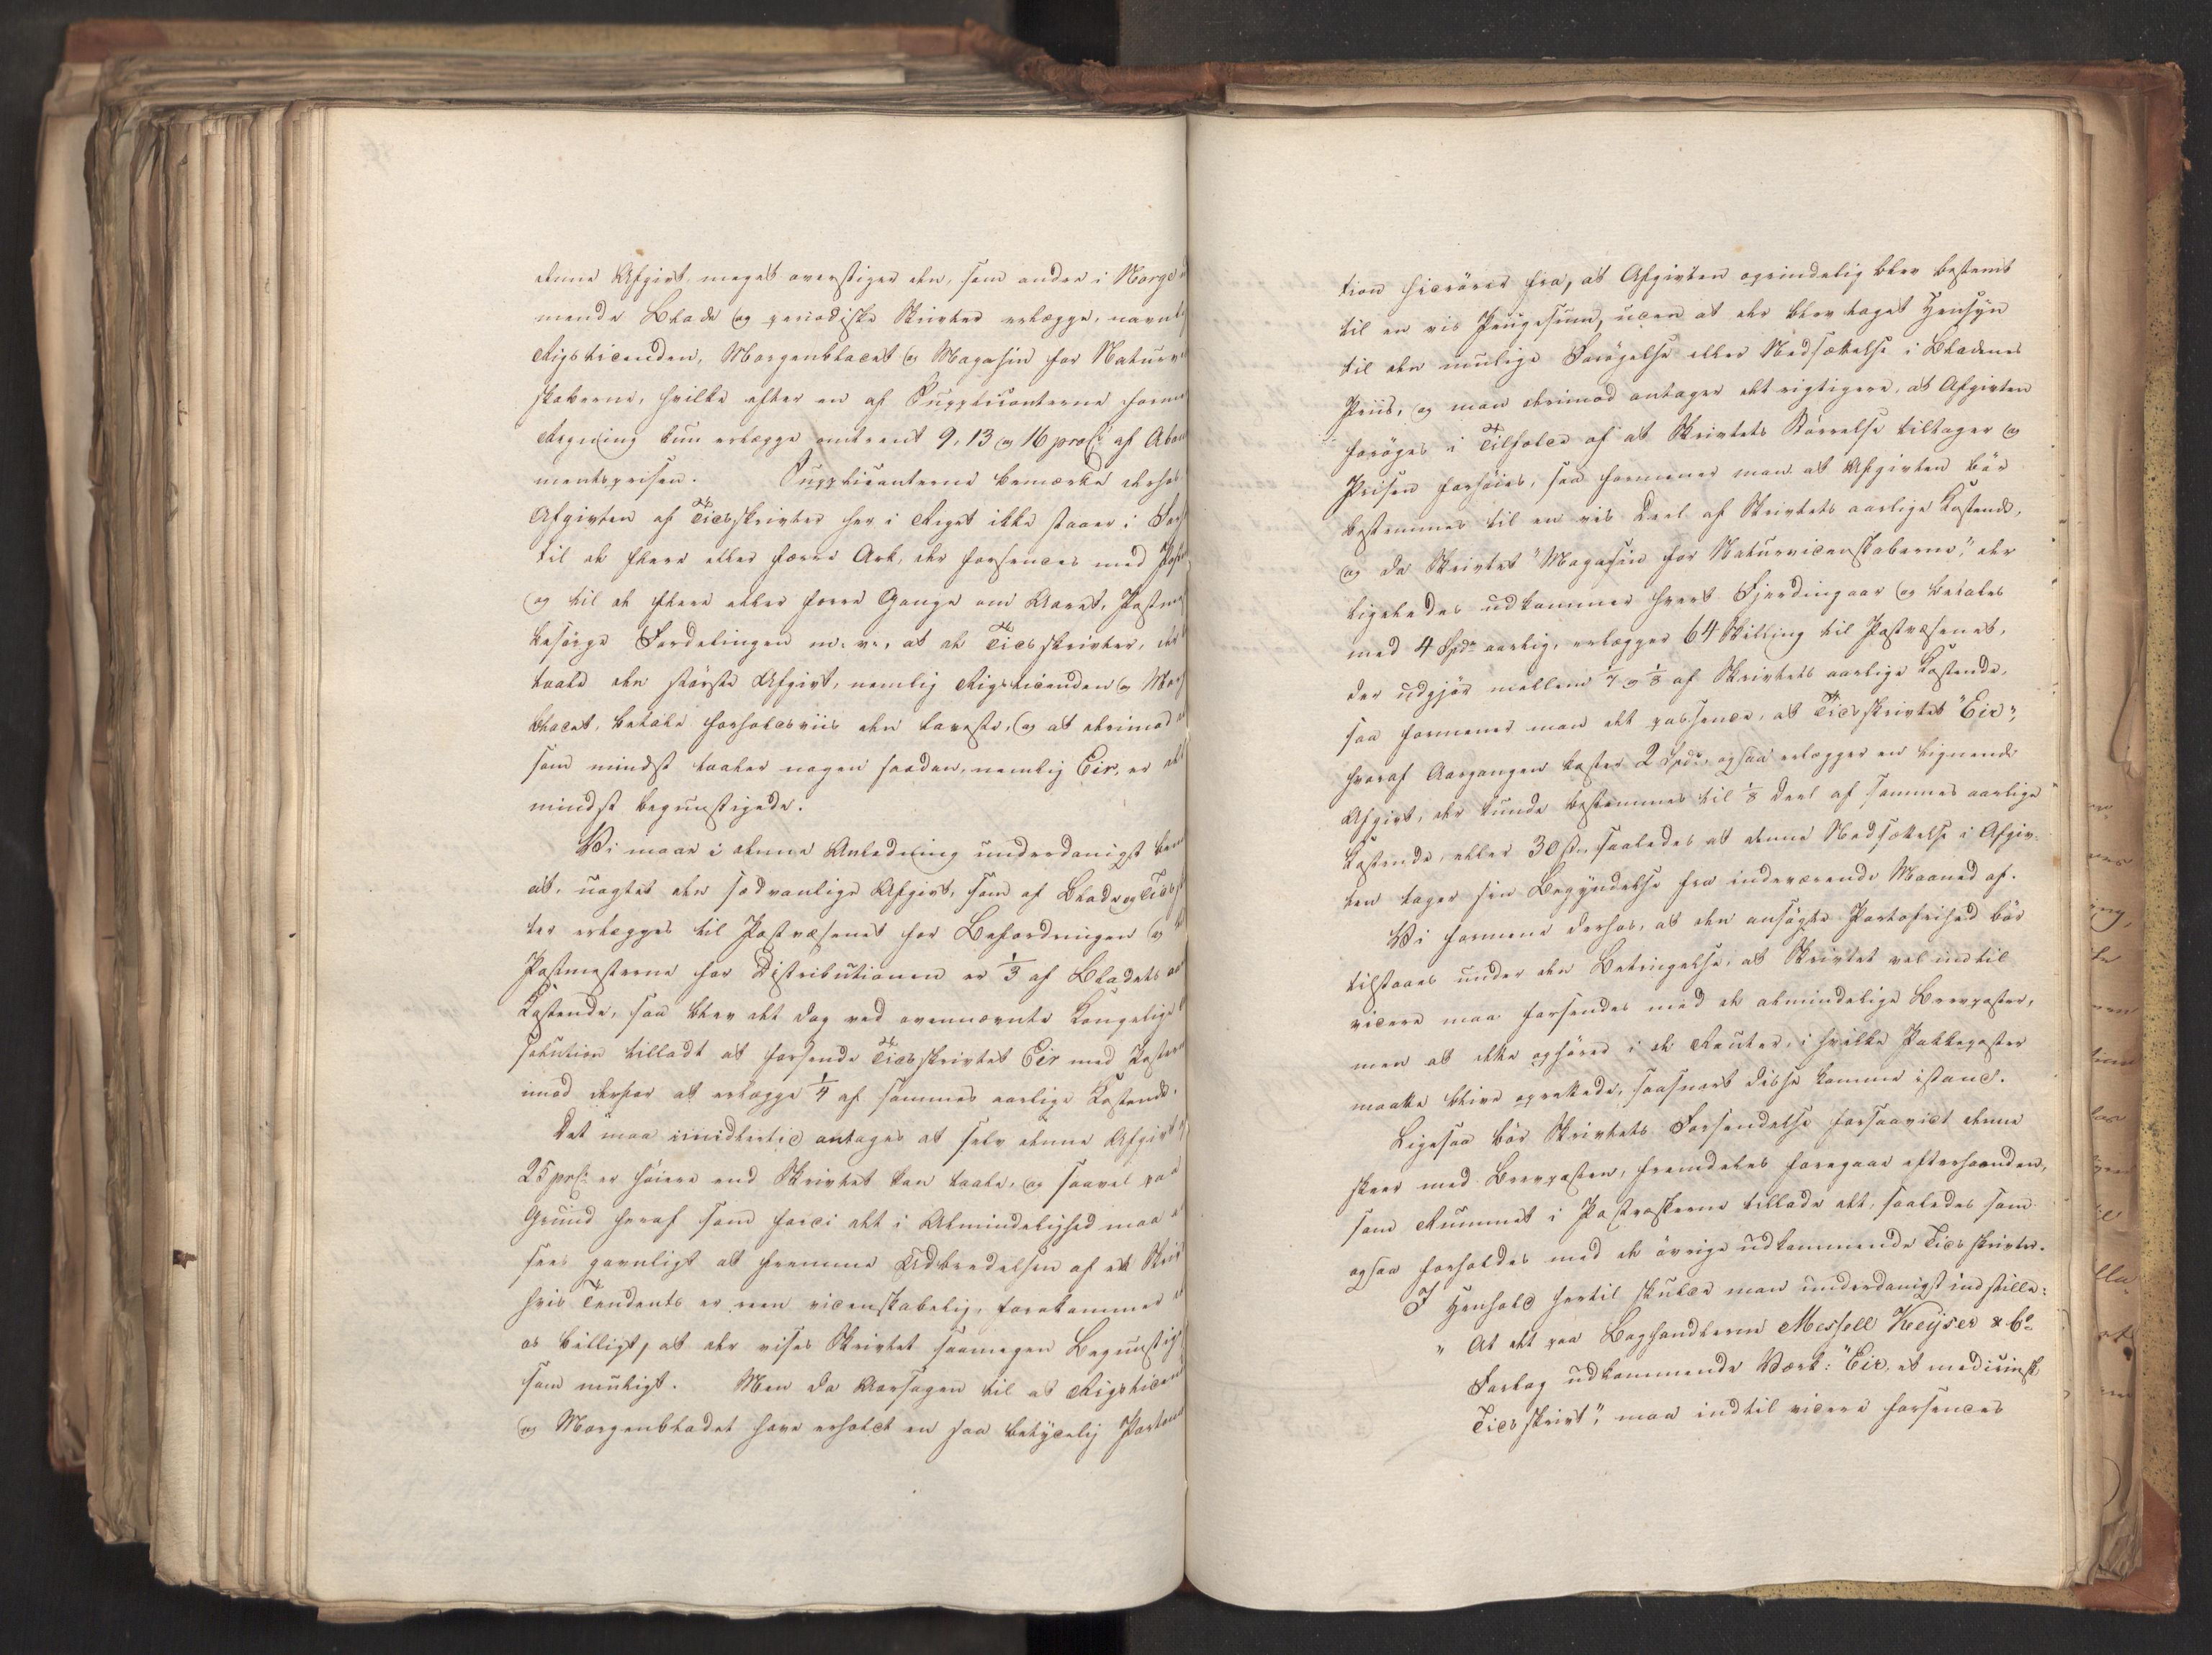 denne Afgivt meget overstiger den, som andre i Norge
mende Blade og periodiske Skrivter erlægge, navnl
Rigstidenden, Morgenbladet og Magasin for Naturv
skaberne, hvilke efter en af Supplicanterne
Regning kun erlægge omtrent 9, 13 og 16 proC: af Abon
mentsprisen. Supplicanterne bemærke derhos
Afgivten af Tidsskrivter her i Riget ikke staaer i For
til de flere eller færre Ark, der forsendes med Post
og til de flere eller færre Gange om Aaret, Postm
besørge Fordelingen m: v:, at de Tidsskrivter, der
taale den største Afgivt, nemlig Rigstidenden og Mor
bladet, betale forholdsviis den laveste, og at derimod
som mindst taaler nogen saadan, nemlig Eir, er det
mindst begunstigede.
Vi maae i denne Anledning underdanigst bem
at, uagtet den sædvanlige Afgivt, som af Blade og Tidss
ter erlægges til Postvæsenet for Befordringen og
Postmesterne for Distributionen er 1/3 af Bladets
Kostende, saa blev det dog ved ovennævnte Kongelige
solution tilladt at forsende Tidsskrivtet Eir med Posten
imod derfor at erlægge 1/4 af sammes aarlige Kostende.
Det maa imidlertid antages at selv denne Afgivt,
25 prC: er høiere end Skrivtet kan taale, og saavel paa
Grund heraf som fordi det i Almindelighed maa
sees gavnligt at fremme Udbredelsen af et Skri
hvis Tendents er reen videnskabelig, forekommer
os billigt, at der vises Skrivtet saamegen Begunstig
som muligt. Men da Aarsagen til at Rigstidend
og Morgenbladet have erholdt en saa betydelig Porto
tion hidrører fra, at Afgivten oprindelig blev bestemt
til en vis Pengesum, uden at der blev taget Hensyn
til den mulige Forøgelse eller Nedsættelse i Bladenes
Priis, og man derimod antager det rigtigere, at Afgivten
forøges i Tilfælde af at Skrivtets Størrelse tiltager og
Prisen forhøies, saa formener man at Afgivten bør
bestemmes til en vis Deel af Skrivtets aarlige Kostende,
og da Skrivtet "Magasin for Naturvidenskaberne", der
ligeledes udkommer hvert Fjerdingaar og betales
med 4 Spd: aarlig, erlægger 64 Skilling til Postvæsenet,
der udgjør mellem 1/7 og 1/8 af Skrivtets aarlige Kostende,
saa formener man det passende, at Tidsskrivtet "Eir",
hvoraf Aargangen koster 2 Spd:, ogsaa erlægger en lignende
Afgivt, der kunde bestemmes til 1/8 Deel af sammes aarlige
Kostende, eller 30 ß, saaledes at denne Nedsættelse i Afgiv-
ten tager sin Begyndelse fra indeværende Maaned af.
Vi formene derhos, at den ansøgte Portofrihed bør
tilstaaes under den Betingelse, at Skrivtet vel indtil
videre maa forsendes med de almindelige Brevposter,
men at dette ophører i de Router, i hvilke Pakkeposter
maatte blive oprettede, saasnart disse komme istand.
Ligesaa bør Skrivtets Forsendelse forsaavidt denne
skeer med Brevposten, fremdeles foregaae efterhaanden,
som Rummet i Posttaskerne tillade det, saaledes som
ogsaa forholdes med de øvrige udkommende Tidsskrivter.
I Henhold hertil skulde man underdanigst indstille:
" At det paa Boghandlerne Messell Keyser & Co
Forlag udkommende Værk: "Eir, et medicinsk
Tidsskrivt", maa indtil videre forsendes